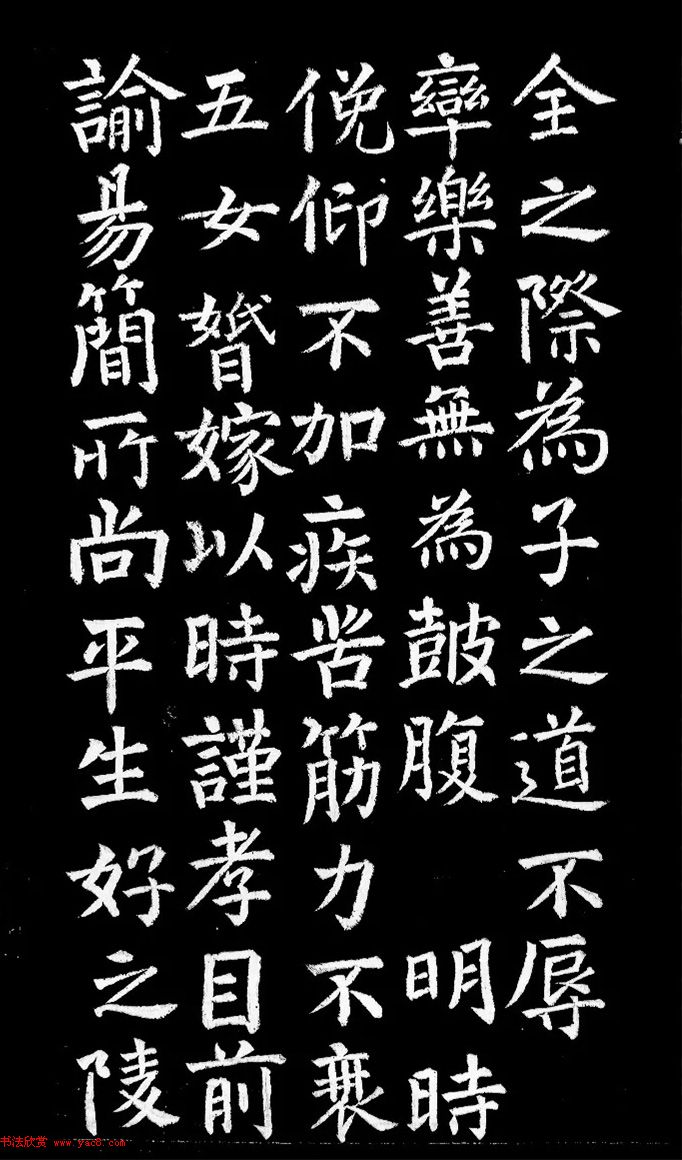 全之際為子之道不辱
率樂善無為皷腹 明時
俛仰不加疾苦筋力不衰
五女婚嫁以時謹孝目前
諭易簡所尚平生好之陵
书法欣赏 www.yac8.com